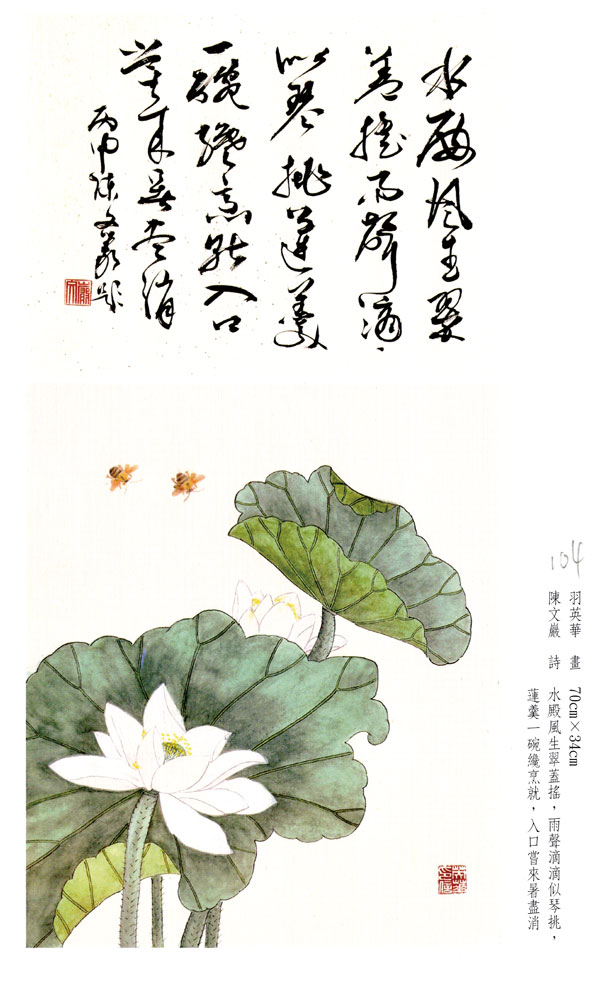 水殿風生翠
蓋搖雨聲滴〻
似琴挑蓮羹
一碗纔烹就入口
嘗來暑盡消
丙申陳文巖題
104
羽英華 畫 70cm×34cm
陳文巖 詩 水殿風生翠蓋搖，雨聲滴滴似琴挑，
蓮羹一碗纔烹就，入口嘗來暑盡消